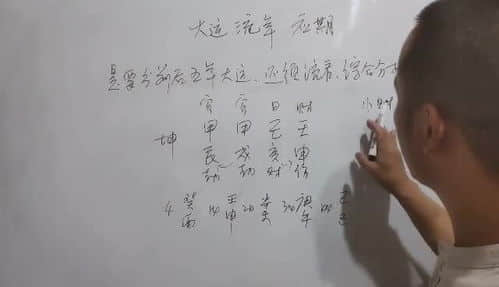 大运 流年 应期
是要分前后五年大运、还须流年、综合分
官 官 日 财 小
甲 甲 己 壬
坤
辰 戌 亥 申
劫 劫 财 伤
4 癸 14 壬 24 辛 34 庚 己
酉 申 未 午 巳